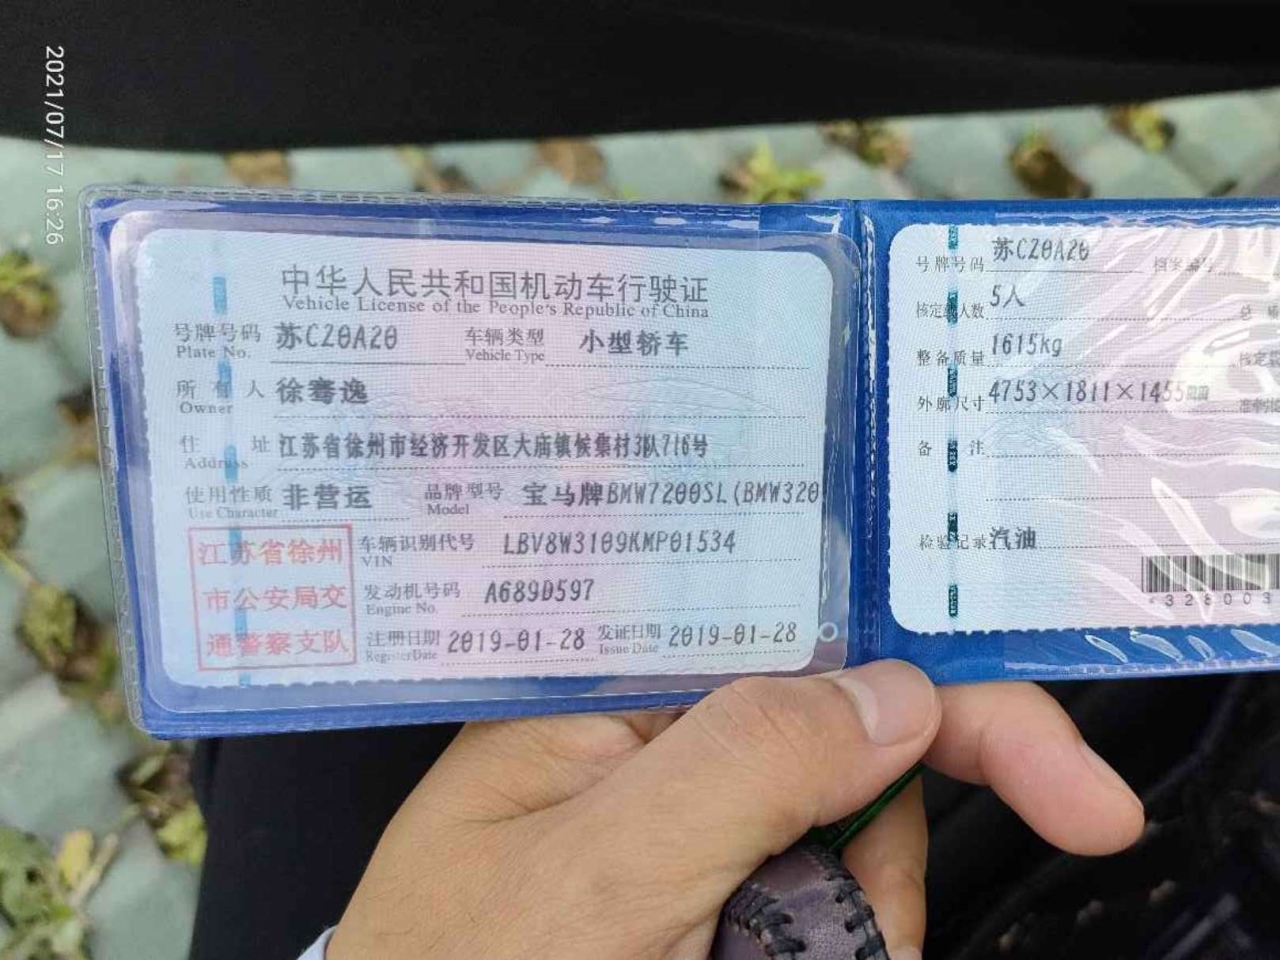 2021/07/17 16:26
中华人民共和国机动车行驶证
Vehicle License of the People's Republic of China
号牌号码 苏C20A20 车辆类型 小型轿车
Plate No. Vehicle Type
所有人 徐骞逸
Owner
住址 江苏省徐州市经济开发区大庙镇候集村3队716号
Address
使用性质 非营运 品牌型号 宝马牌BMW7200SL(BMW320
Use Character Model
江苏省徐州
市公安局交
通警察支队
车辆识别代号 LBV8W3109KMP01534
VIN
发动机号码 A689D597
Engine No.
注册日期 2019-01-28 发证日期 2019-01-28
Register Date Issue Date
号牌号码 苏C20A20 档案编号
核定载人数 5人 总
整备质量 1615kg 核定
外廓尺寸 4753×1811×1455mm
备注
检验记录 汽油
*328003